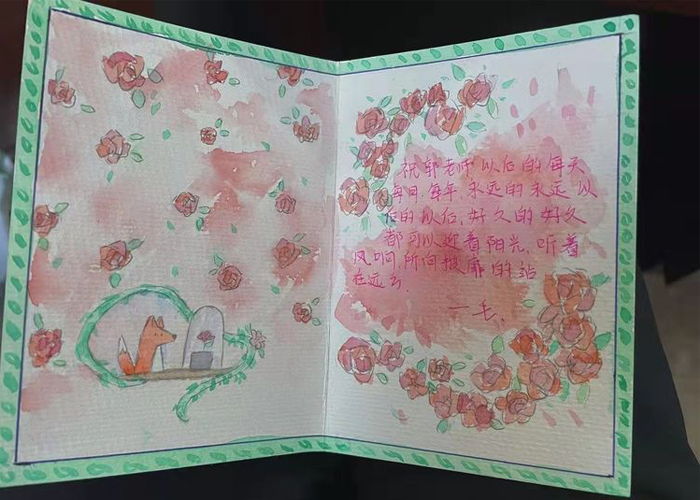 祝郭老师以后的每天
每月，每年，永远的永远以
后的以后，好久的好久
都可以迎着阳光，听着
风啊，所向披靡的站
在远方.
一毛.